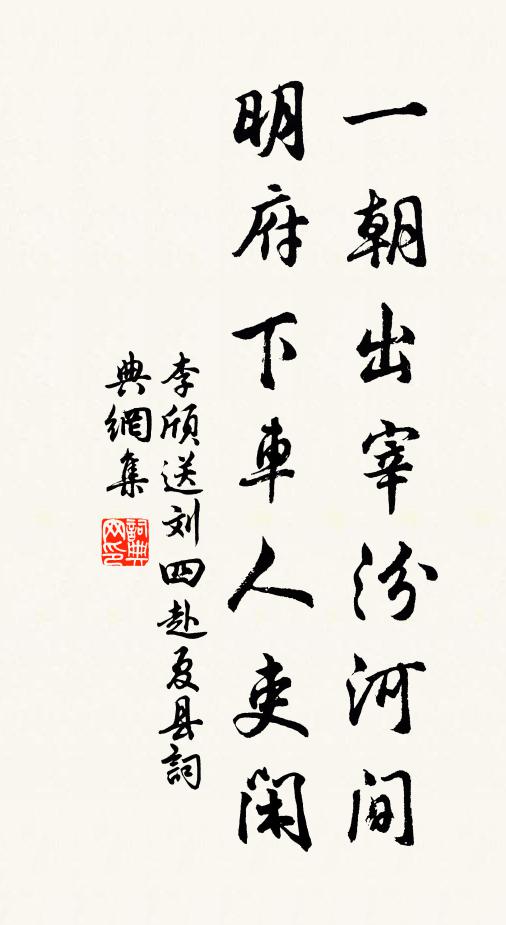 一朝出宰汾河间
明府下車人吏闲
李颀送刘四赴夏县詞
典網集
詞典网印